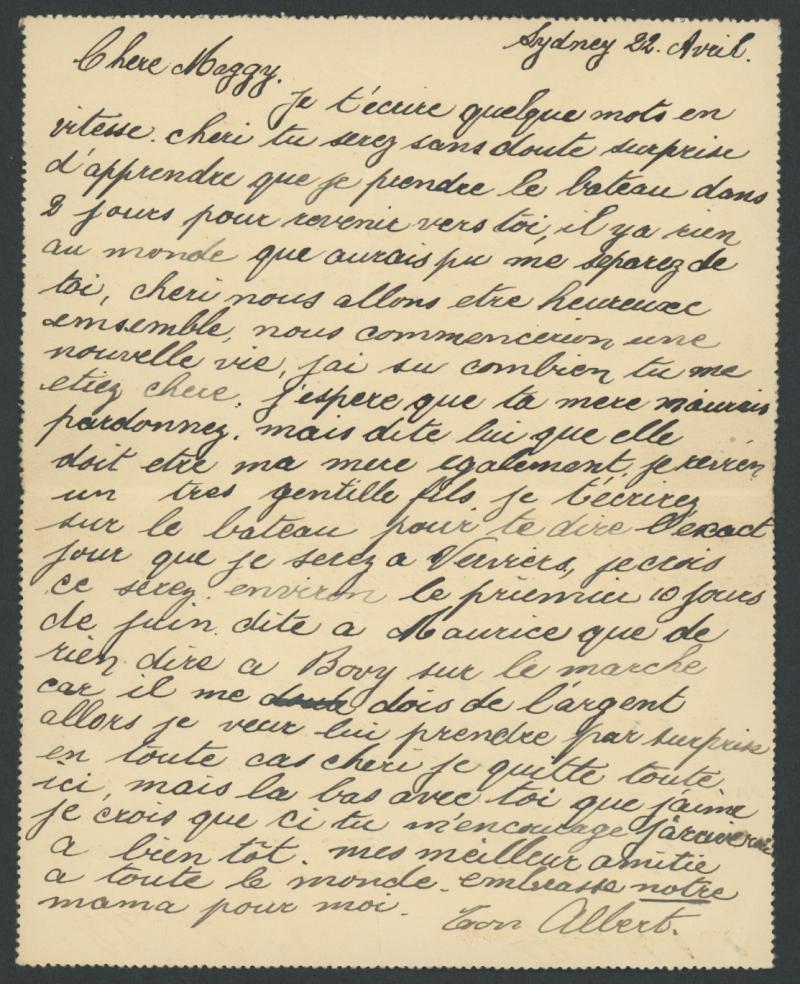 Sydney 22. Avril.
Chere Maggy.
Je t'ecrire quelque mots en
vitesse. cheri tu serez sans doute surprise
d'apprendre que je prendre le bateau dans
2 jours pour revenir vers toi, il y a rien
au monde que aurais pu me separez de
toi, cheri nous allons etre heureuxe
emsemble, nous commencerion une
nouvelle vie, j'ai su combien tu me
etiez chere, j'espere que ta mere m'aurais
pardonnez. mais dite lui que elle
doit etre ma mere egalement, je
un tres gentille fils je t'ecrirez
sur le bateau pour te dire l'exact
jour que je serez a Verviers, je crois
ce serez environ le priemier 10 jours
de juin. dite a Maurice que de
rien dire a Bovy sur le marche
car il me dois de l'argent
allors je veux lui prendre par surprise
en toute cas cheri je quitte toute
ici, mais la bas avec toi que j'aime
je crois que ci tu m'encourage
a bien tôt. mes meilleur amitie
a toute le monde. embrasse notre
mama pour moi.
Ton Albert.